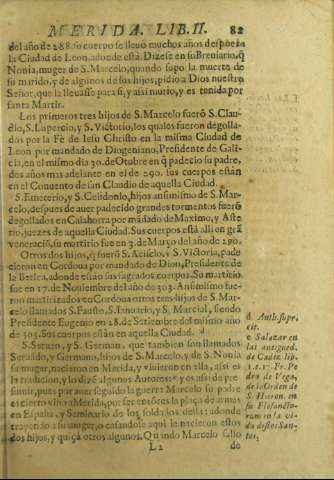 MERIDA. LIB. II. 82
del año de 288. su cuerpo se lleuò muchos años despues a
la Ciudad de Leon, adonde està. Dizese en su Breuiario, q̃
Nonia, muger de S. Marcelo, quando supo la muerte de
su marido, y de algunos de sus hijos, pidio a Dios nuestro
Señor, que la lleuasse para si, y assi murio, y es tenida por
santa Martir.
Los primeros tres hijos de S. Marcelo fuerõ S. Clau
dio, S. Lupercio, y S. Victorio, los quales fueron degolla-
dos por la Fe de Iesu Christo en la misma Ciudad de
Leon por mandado de Diogeniano, Presidente de Gali-
cia, en el mismo dia 30. de Octubre en q̃ padecio su padre,
dos años mas adelante en el de 290. sus cuerpos estàn
en el Conuento de san Claudio de aquella Ciudad.
S. Emeterio, y S. Celidonio, hijos ansimismo de S. Mar-
celo, despues de auer padecido grandes tormentos fuerõ
degollados en Calahorra por mãdado de Maximo, y Aste
rio, juezes de aquella Ciudad. Sus cuerpos està alli en grã
veneraciõ, su martirio fue en 3. de Março del año de 290.
Otros dos hijos, q̃ fuerõ S. Aciclo, y S. Victoria, pade
cieron en Cordoua por mandado de Dion, Presidente de
la Betica, adonde estàn sus sagrados cuerpos. Su martirio
fue en 17. de Nouiembre del año de 303. Ansimismo fue-
ron martirizados en Cordoua otros tres hijos de S. Mar-
celo llamados S. Fausto, S. Ianuario, y S. Marcial, siendo
Presidente Eugenio en 28. de Setiembre del mismo año
de 303. Sus cuerpos estàn en aquella Ciudad.
S. Seruan, y S. German, que tambien son llamados
Seruãdo, y Germano, hijos de S. Marcelo, y de S. Nonia
su muger, nacieron en Merida, y viuieron en ella, assi es
la tradicion, y lo dizẽ algunos Autores: y es assi de pre
sumir, pues por auer seguido la guerra Marcelo su padre
es cierto vino a Merida, por ser entõces la plaça de armas
en España, y Seminario de los soldados della: adonde
trayendo a su muger, o casandose aqui le nacieron estos
dos hijos, y quiça otros algunos. Quando Marcelo salio
L2 de
Auth. supr.
cit.
Salazar en
las antigued.
de Cadiz lib.
Fr. Pe
dro de Vega,
de la Orden de
S. Hieron. en
su Flosanctõ-
rum en la vi
da destos San-
tos.